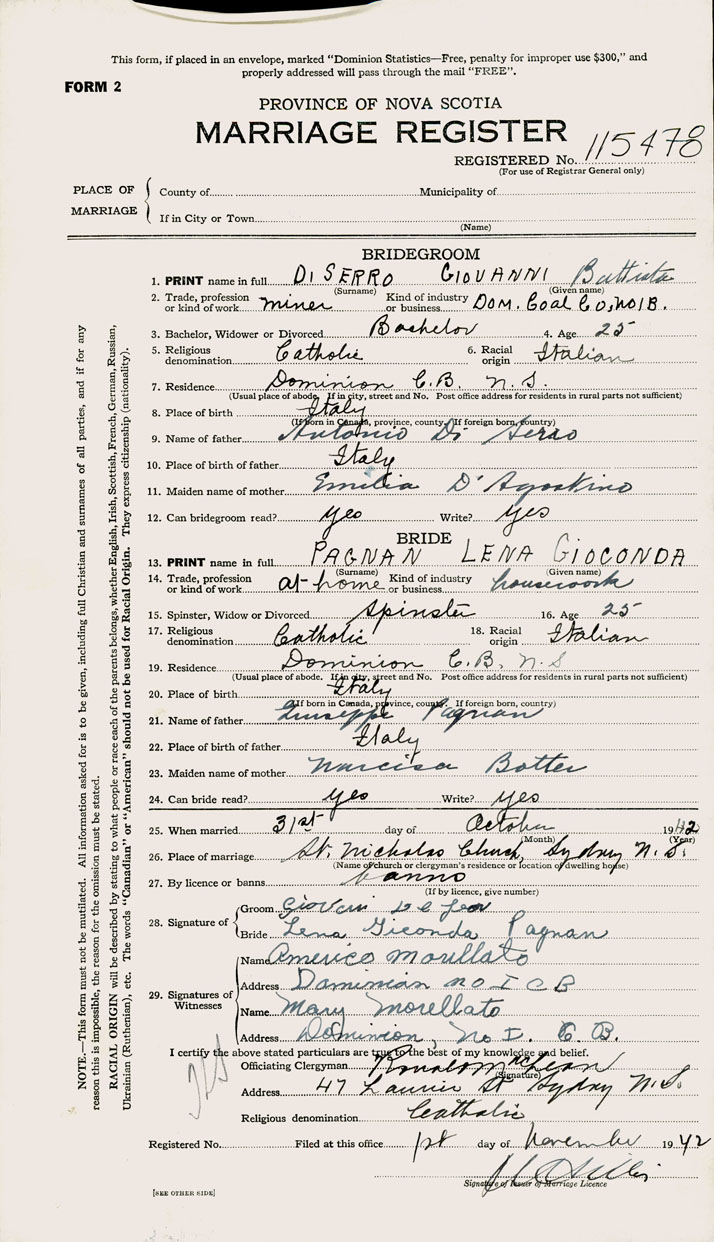 This form, if placed in an envelope, marked "Dominion Statistics—Free, penalty for improper use $300," and
properly addressed will pass through the mail "FREE".
FORM 2
PROVINCE OF NOVA SCOTIA
MARRIAGE REGISTER
REGISTERED No. 115478
(For use of Registrar General only)
PLACE OF MARRIAGE
County of Municipality of
If in City or Town
(Name)
BRIDEGROOM
1. PRINT name in full DI SERRO GIOVANNI Battista
(Surname) (Given name)
2. Trade, profession or kind of work miner Kind of industry or business DOM. Coal Co, NO 1B.
3. Bachelor, Widower or Divorced Bachelor 4. Age 25
5. Religious denomination Catholic 6. Racial origin Italian
7. Residence Dominion C.B. N.S.
(Usual place of abode. If in city, street and No. Post office address for residents in rural parts not sufficient)
8. Place of birth Italy
(If born in Canada, province, county. If foreign born, country)
9. Name of father Antonio Di Serro
10. Place of birth of father Italy
11. Maiden name of mother Emilia D'Agostino
12. Can bridegroom read? yes Write? yes
BRIDE
13. PRINT name in full PAGNAN LENA GIOCONDA
(Surname) (Given name)
14. Trade, profession or kind of work at home Kind of industry or business housework
15. Spinster, Widow or Divorced Spinster 16. Age 25
17. Religious denomination Catholic 18. Racial origin Italian
19. Residence Dominion C.B. N.S
(Usual place of abode. If in city, street and No. Post office address for residents in rural parts not sufficient)
20. Place of birth Italy
(If born in Canada, province, county. If foreign born, country)
21. Name of father Giuseppe Pagnan
22. Place of birth of father Italy
23. Maiden name of mother Narcisa Botter
24. Can bride read? yes Write? yes
25. When married 31st day of October 1942
(Month) (Year)
26. Place of marriage St. Nicholas Church, Sydney N.S.
(Name of church or clergyman's residence or location of dwelling house)
27. By licence or banns banns
(If by licence, give number)
28. Signature of
Groom Giovani
Bride Lena Giconda Pagnan
29. Signatures of Witnesses
Name Americo Morellato
Address Dominion no I C B
Name Mary Morellato
Address Dominion, No I. C. B.
I certify the above stated particulars are true to the best of my knowledge and belief.
Officiating Clergyman Ronald McLean
(Signature)
Address 47 Laurier St Sydney N.S.
Religious denomination Catholic
Registered No. Filed at this office 1st day of November 1942
Signature of Issuer of Marriage Licence
[SEE OTHER SIDE]
NOTE.—This form must not be mutilated. All information asked for is to be given, including full Christian and surnames of all parties, and if for any
reason this is impossible, the reason for the omission must be stated.
RACIAL ORIGIN will be described by stating to what people or race each of the parents belongs, whether English, Irish, Scottish, French, German, Russian,
Ukrainian (Ruthenian), etc. The words "Canadian" or "American" should not be used for Racial Origin. They express citizenship (nationality).